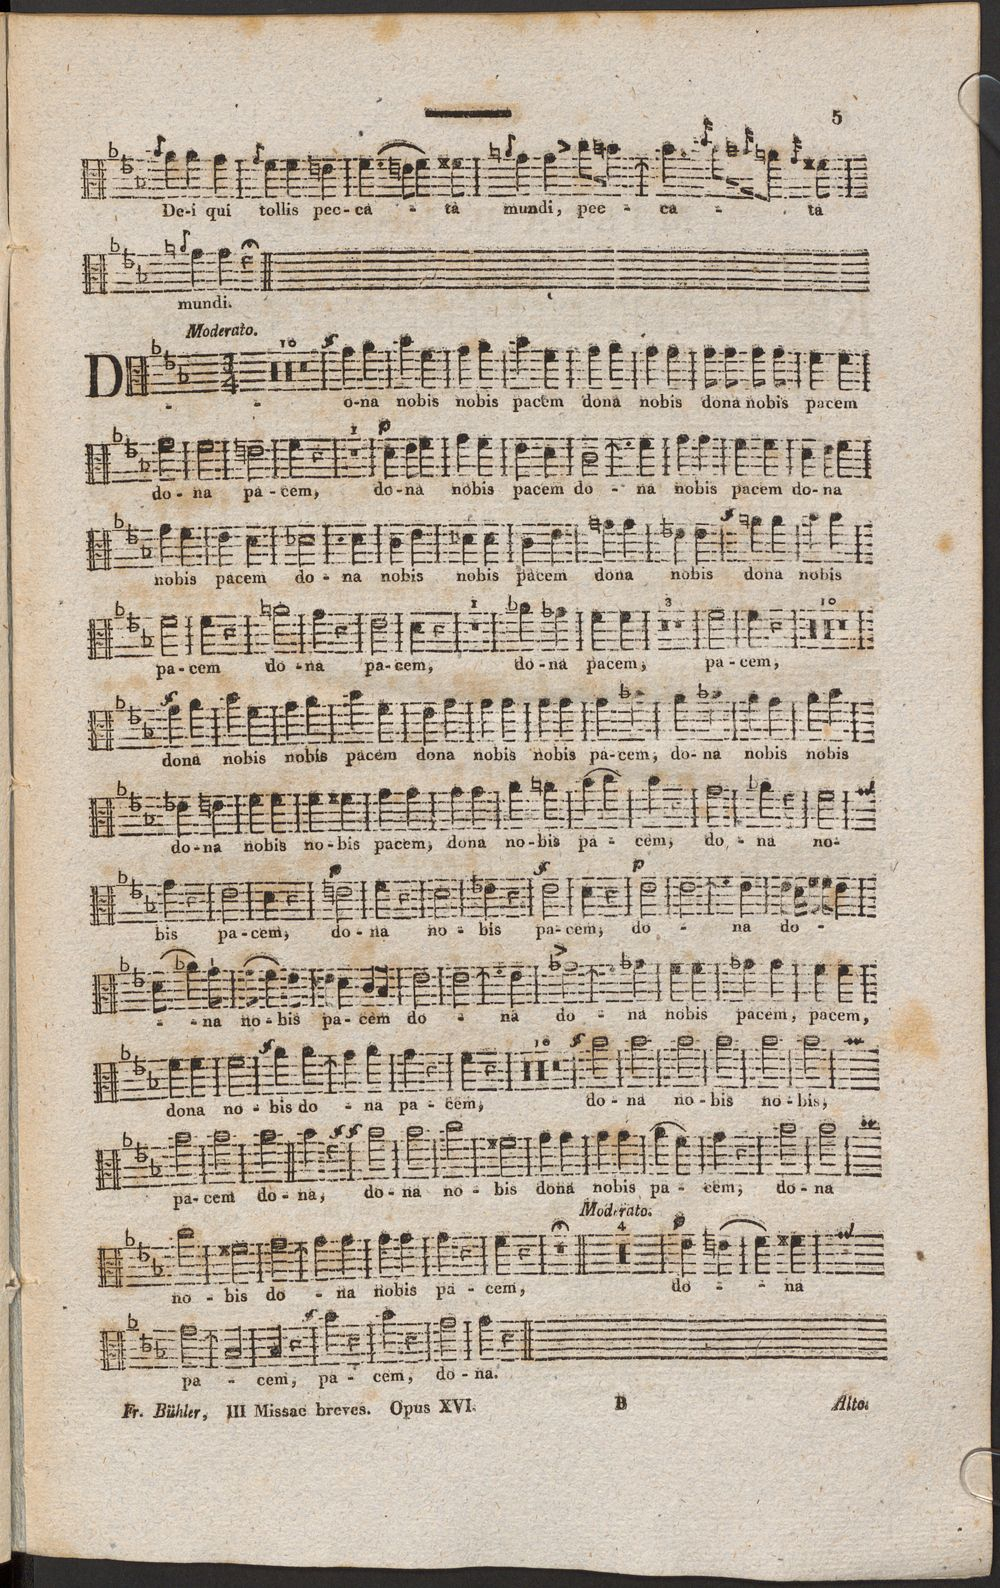 5
De-i qui tollis pec-ca - ta mundi, pec - ca - - ta
mundi.
Moderato.
10
D - - o-na nobis nobis pacem dona nobis dona nobis pacem
1 p
do - na pa - cem, do-na nobis pacem do - na nobis pacem do-na
nobis pacem do - na nobis nobis pacem dona nobis dona nobis
1 3 10
pa-cem do -na pa-cem, do-na pacem, pa-cem,
dona nobis nobis pacem dona nobis nobis pa-cem, do- na nobis nobis
do-na nobis no-bis pacem, dona no-bis pa - cem, do - na no-
p p
bis pa-cem, do-na no - bis pa-cem, do - na do -
- -na no-bis pa-cem do - na do - na nobis pacem, pacem,
10
dona no - bis do - na pa - cem, do - na no - bis no - bis,
pa-cem do - na, do - na no - bis dona nobis pa - cem, do - na
Moderato.
4 p
no - bis do - na nobis pa - cem, do - - na
pa - cem, pa - cem, do - na.
Fr. Bühler, III Missae breves. Opus XVI. B Alto.